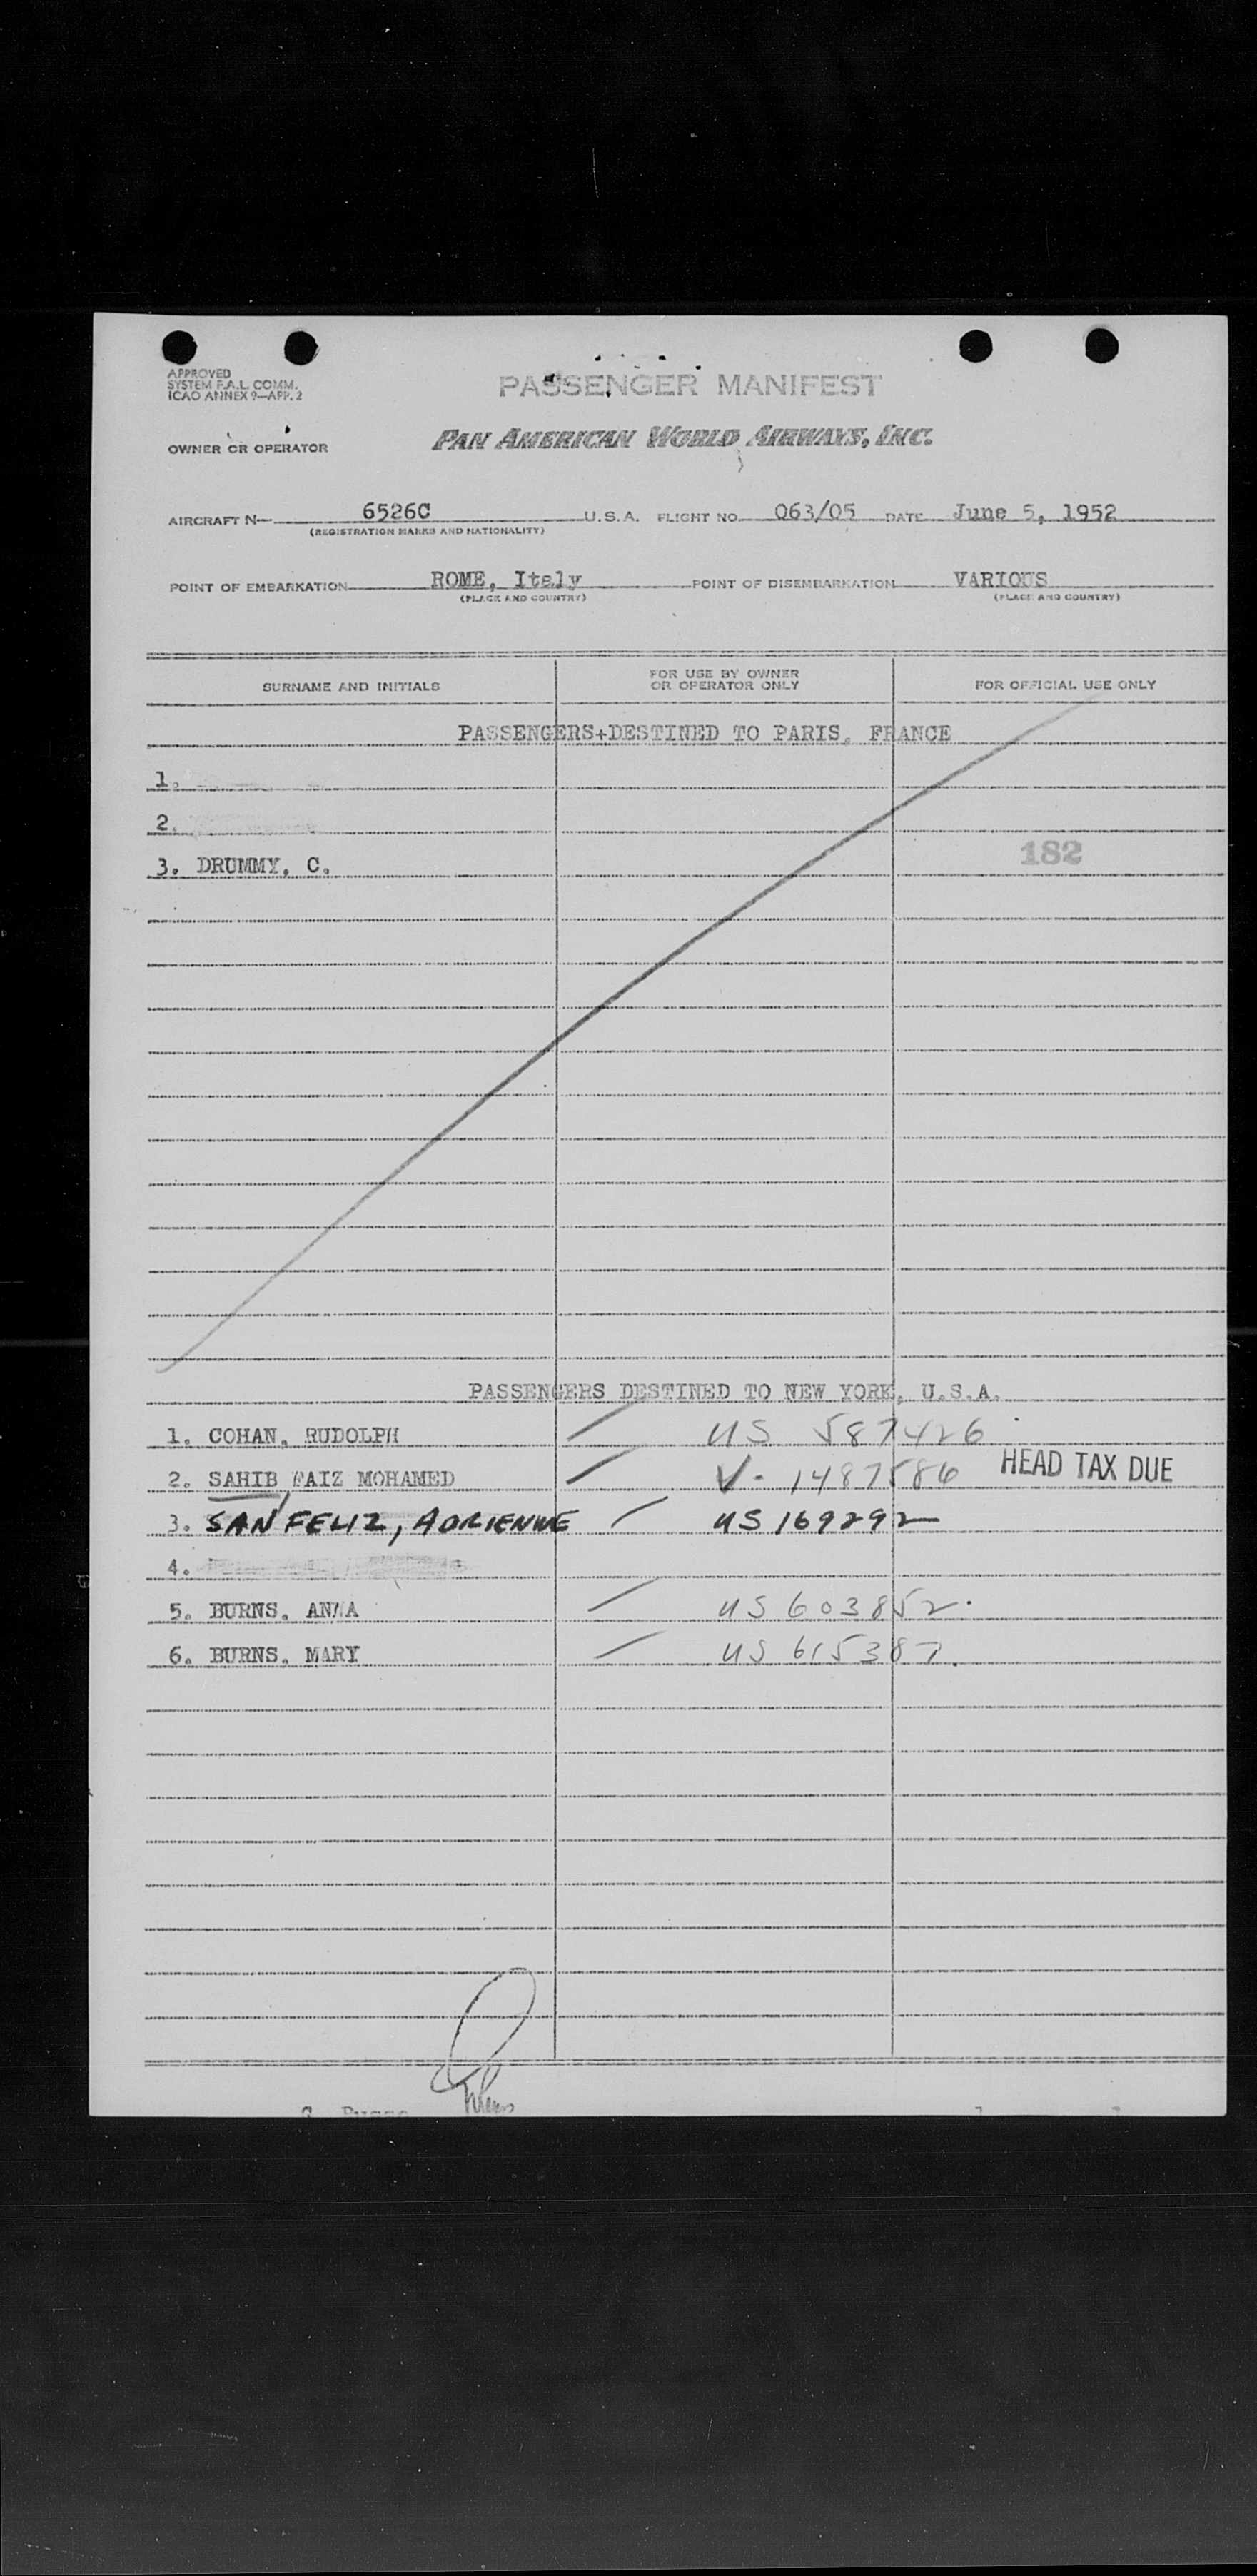 APPROVED
SYSTEM F.A.L. COMM.
ICAO ANNEX 9—APP. 2
PASSENGER MANIFEST
OWNER OR OPERATOR PAN AMERICAN WORLD AIRWAYS, INC.
AIRCRAFT N— 6526C U.S.A. FLIGHT NO. 063/05 DATE June 5, 1952
(REGISTRATION MARKS AND NATIONALITY)
POINT OF EMBARKATION ROME, Italy POINT OF DISEMBARKATION VARIOUS
(PLACE AND COUNTRY) (PLACE AND COUNTRY)
SURNAME AND INITIALS FOR USE BY OWNER OR OPERATOR ONLY FOR OFFICIAL USE ONLY
PASSENGERS+DESTINED TO PARIS, FRANCE
1.
2.
182
3. DRUMMY, C.
PASSENGERS DESTINED TO NEW YORK, U.S.A.
1. COHAN, RUDOLPH US 587426
2. SAHIB, FAIZ MOHAMED V- 1487586 HEAD TAX DUE
3. SANFELIZ, ADRIENNE US 169292
4.
5. BURNS, ANNA US 603852.
6. BURNS, MARY US 615387.